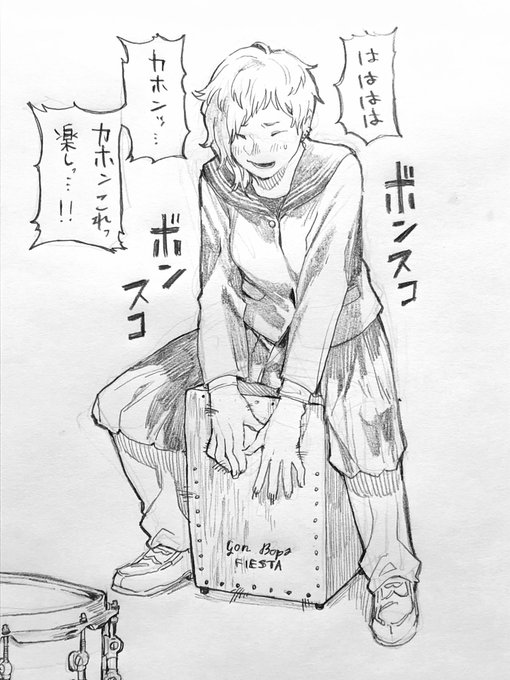 はははは
カホンッ…
カホンこれっ
楽しっ…!!
ボンスコ
ボンスコ
Gon Bops
FIESTA